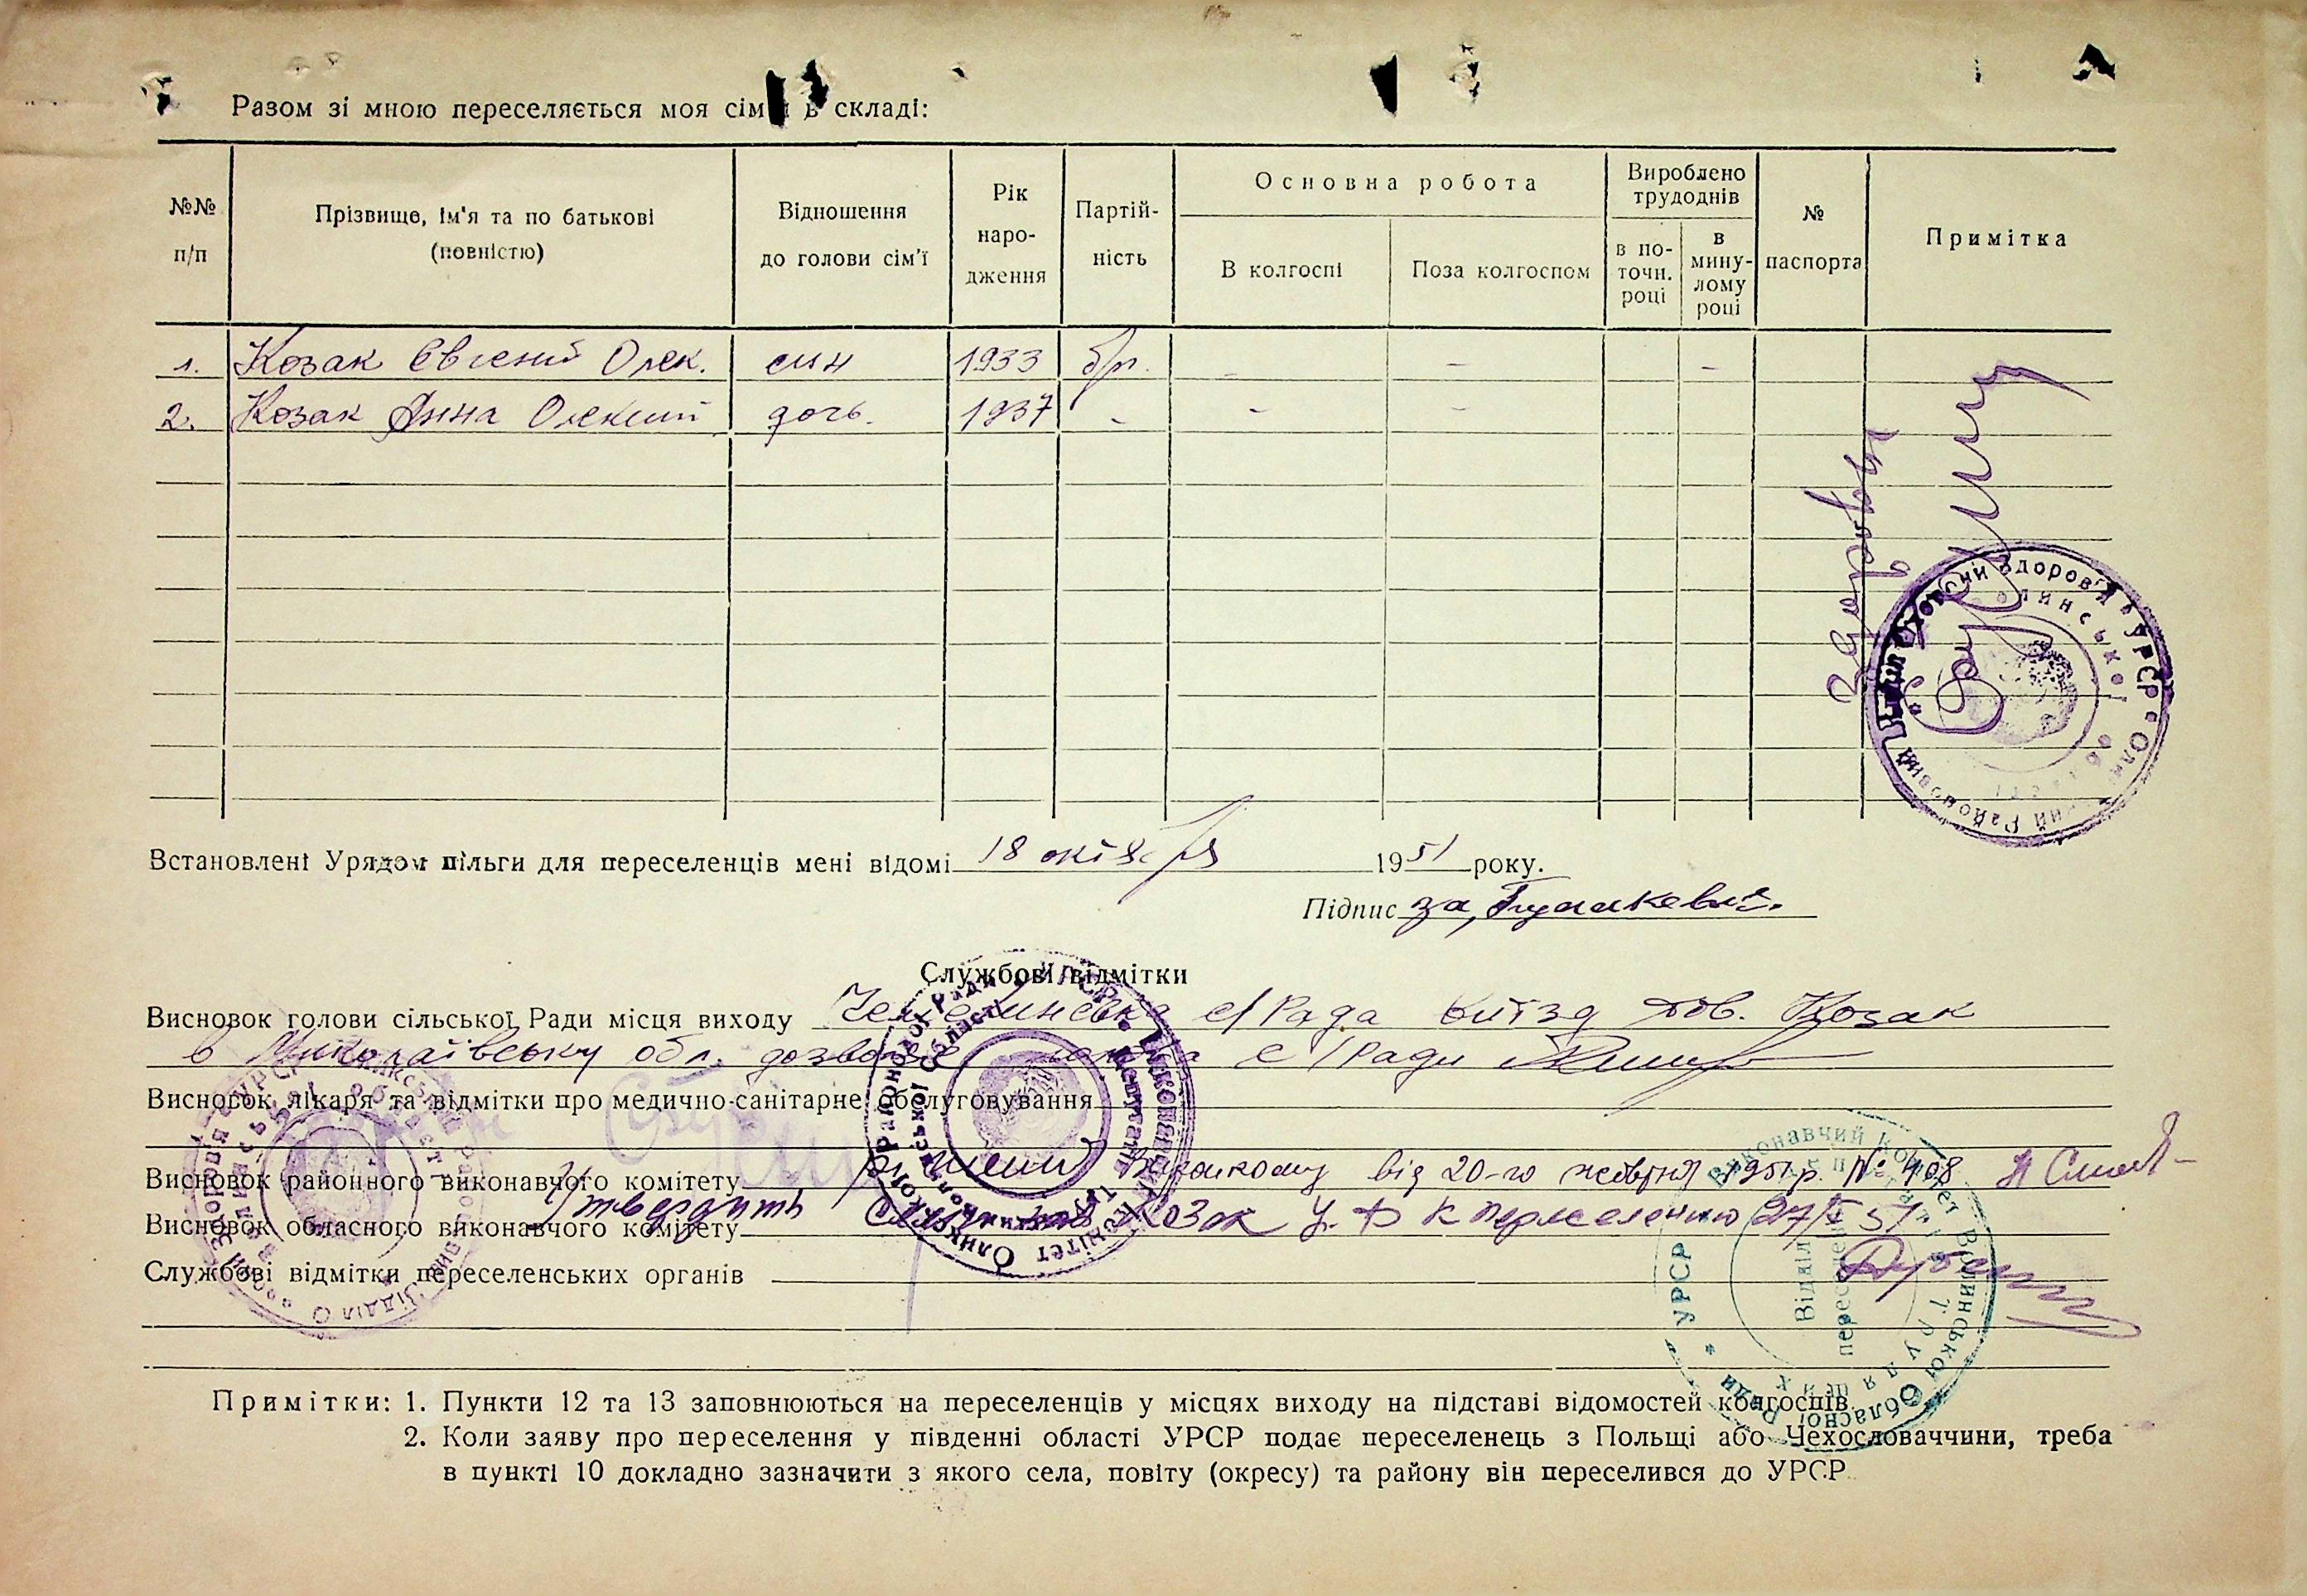 Разом зі мною переселяється моя сім'я в складі:
№№ п/п
Прізвище, ім'я та по батькові (повністю)
Відношення до голови сім'ї
Рік народження
Партійність
Основна робота
В колгоспі
Поза колгоспом
Вироблено трудоднів
в поточн. році
в минулому році
№ паспорта
Примітка
1. Козак Євгений Олек. син 1933 б/п. - - -
2. Козак Анна Олексий дочь. 1937 - - -
здоровы
Встановлені Урядом пільги для переселенців мені відомі 18 октября 1951 року.
Підпис за,
Службові відмітки
Висновок голови сільської Ради місця виходу с/Рада виїзд тов. Козак
в Миколаївську обл. дозволяє голова с/Ради
Висновок лікаря та відмітки про медично-санітарне обслуговування
Висновок районного виконавчого комітету рішення виконкому від 20-го жовтня 1951 р. № 408
Висновок обласного виконавчого комітету Утвердить Козак У. Ф к переселению 27/X 51
Службові відмітки переселенських органів
Примітки: 1. Пункти 12 та 13 заповнюються на переселенців у місцях виходу на підставі відомостей колгоспів.
2. Коли заяву про переселення у південні області УРСР подає переселенець з Польщі або Чехословаччини, треба
в пункті 10 докладно зазначити з якого села, повіту (окресу) та району він переселився до УРСР.